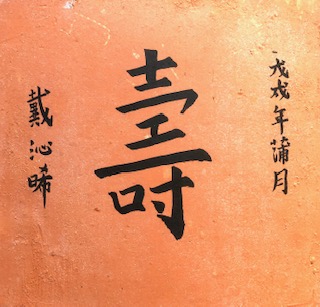 戊戌年蒲月
壽
戴沁晞